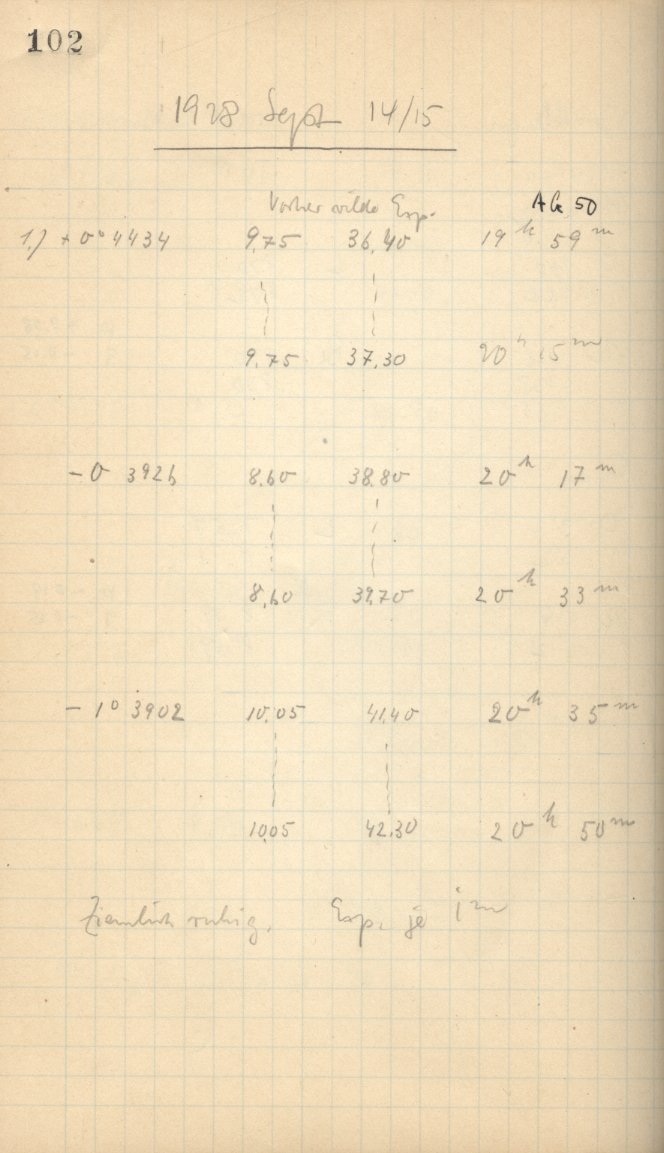 102
1928 Sept 14/15
Vorher wilde Exp. AG 50
1.) + 0° 4434 9,75 36,40 19 h 59 m
9,75 37,30 20 h 15 m
- 0 3926 8,60 38,80 20 h 17 m
8,60 39,70 20 h 33 m
- 1° 3902 10,05 41,40 20 h 35 m
10,05 42,30 20 h 50 m
Ziemlich ruhig. Exp. je 1 m